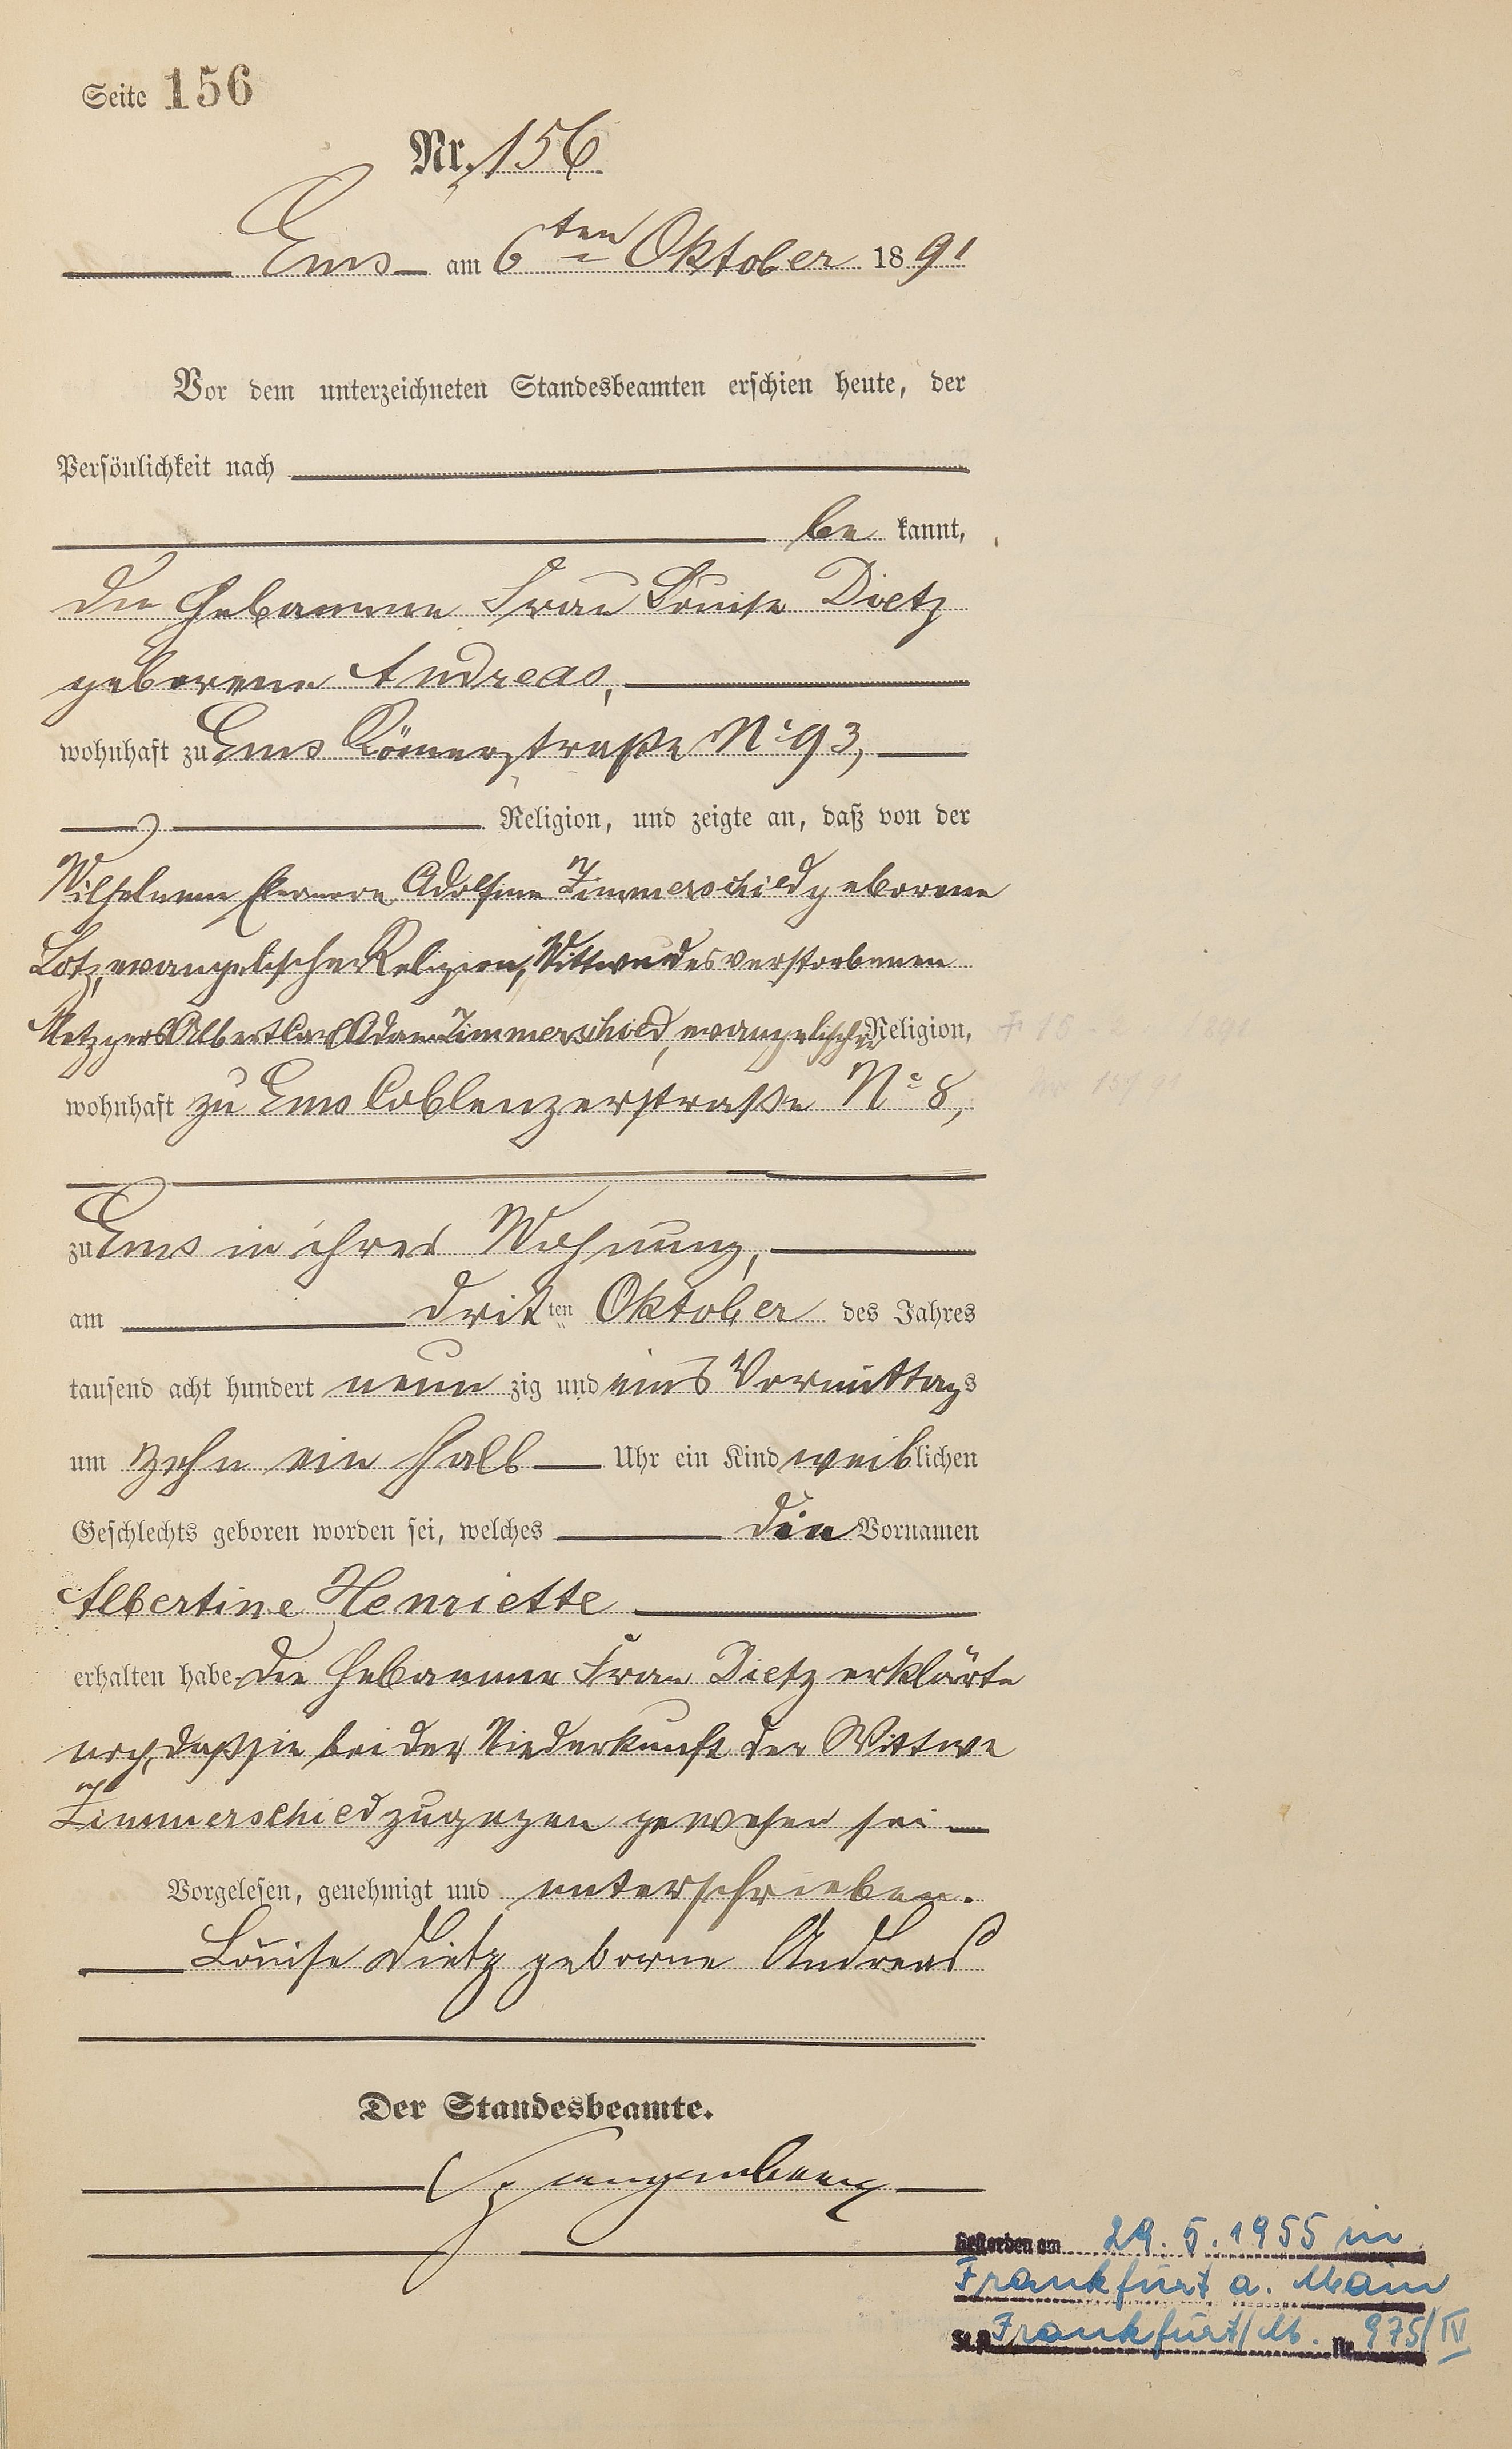 Seite 156
Nr. 156
Ems am 6ten Oktober 1891
Vor dem unterzeichneten Standesbeamten erschien heute, der
Persönlichkeit nach
be kannt,
die Hebamme Frau Louise Dietz
geborene Andreas,
wohnhaft zu Ems Römerstraße No 93,
Religion, und zeigte an, daß von der
Wilhelmine Adolfine Zimmerschied geborene
Lotz, evangelischer Religion, Wittwe des verstorbenen
Metzgers Albert Carl Adam Zimmerschied, evangelischer Religion,
wohnhaft zu Ems Coblenzerstraße No 8,
zu Ems in ihrer Wohnung,
am dritten Oktober des Jahres
tausend acht hundert neun zig und eins Vormittags
um zehn ein halb Uhr ein Kind weiblichen
Geschlechts geboren worden sei, welches die Vornamen
Albertine Henriette
erhalten habe. Die Hebamme Frau Dietz erklärte
noch, daß sie bei der Niederkunft der Wittwe
Zimmerschied zugegen gewesen sei
Vorgelesen, genehmigt und unterschrieben.
Louise Dietz geborne Andreas
Der Standesbeamte.
Spangenberg
Gestorben am 29.5.1955 in
Frankfurt a. Main
St.A. Frankfurt/M. Nr. 975/IV